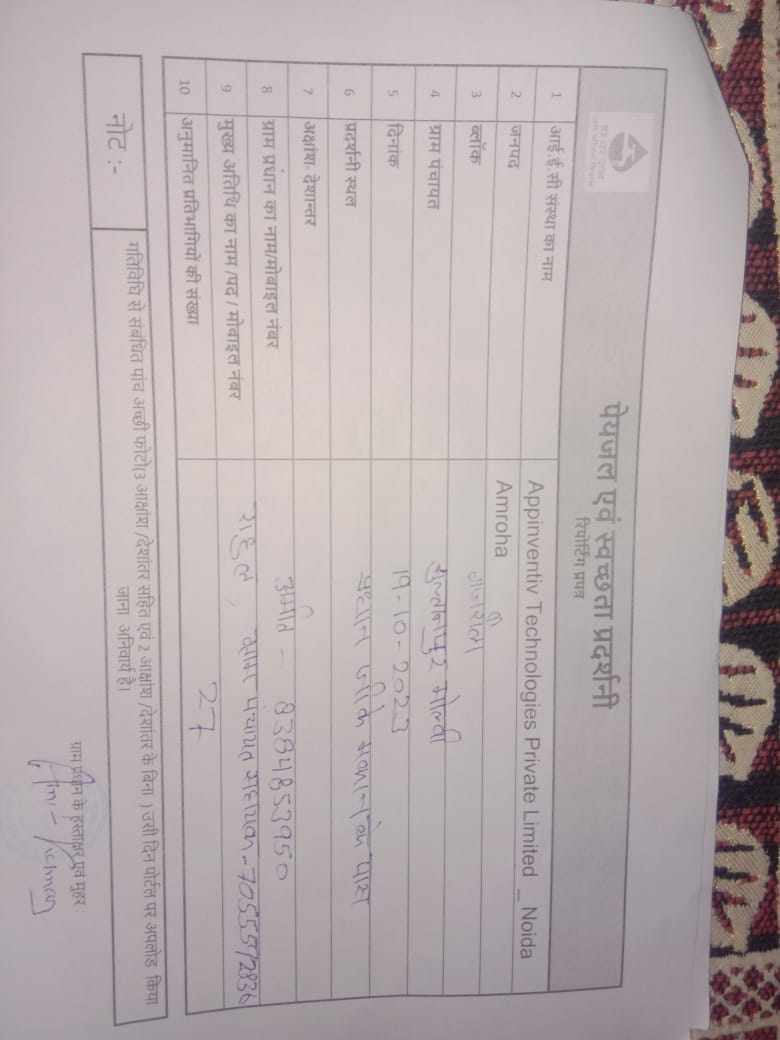 पेयजल एवं स्वच्छता प्रदर्शनी
रिपोर्टिंग प्रपत्र
1 आई.ई.सी संस्था का नाम Appinventiv Technologies Private Limited _ Noida
2 जनपद Amroha
3 ब्लॉक गजरौला
4 ग्राम पंचायत सुल्तानपुर
5 दिनांक 19-10-2023
6 प्रदर्शनी स्थल प्रधान जी के मकान के पास
7 अक्षांश- देशान्तर
8 ग्राम प्रधान का नाम/मोबाइल नंबर अमीत - 8384853950
9 मुख्य अतिथि का नाम /पद / मोबाइल नंबर राहुल, ग्राम पंचायत सहायक - 7055572836
10 अनुमानित प्रतिभागियों की संख्या 27
नोट :- गतिविधि से संबंधित पांच अच्छी फोटो(3 आक्षांश /देशांतर सहित एवं 2 आक्षांश /देशांतर के बिना ) उसी दिन पोर्टल पर अपलोड किया
जाना अनिवार्य है।
ग्राम प्रधान के हस्ताक्षर एवं मुहर